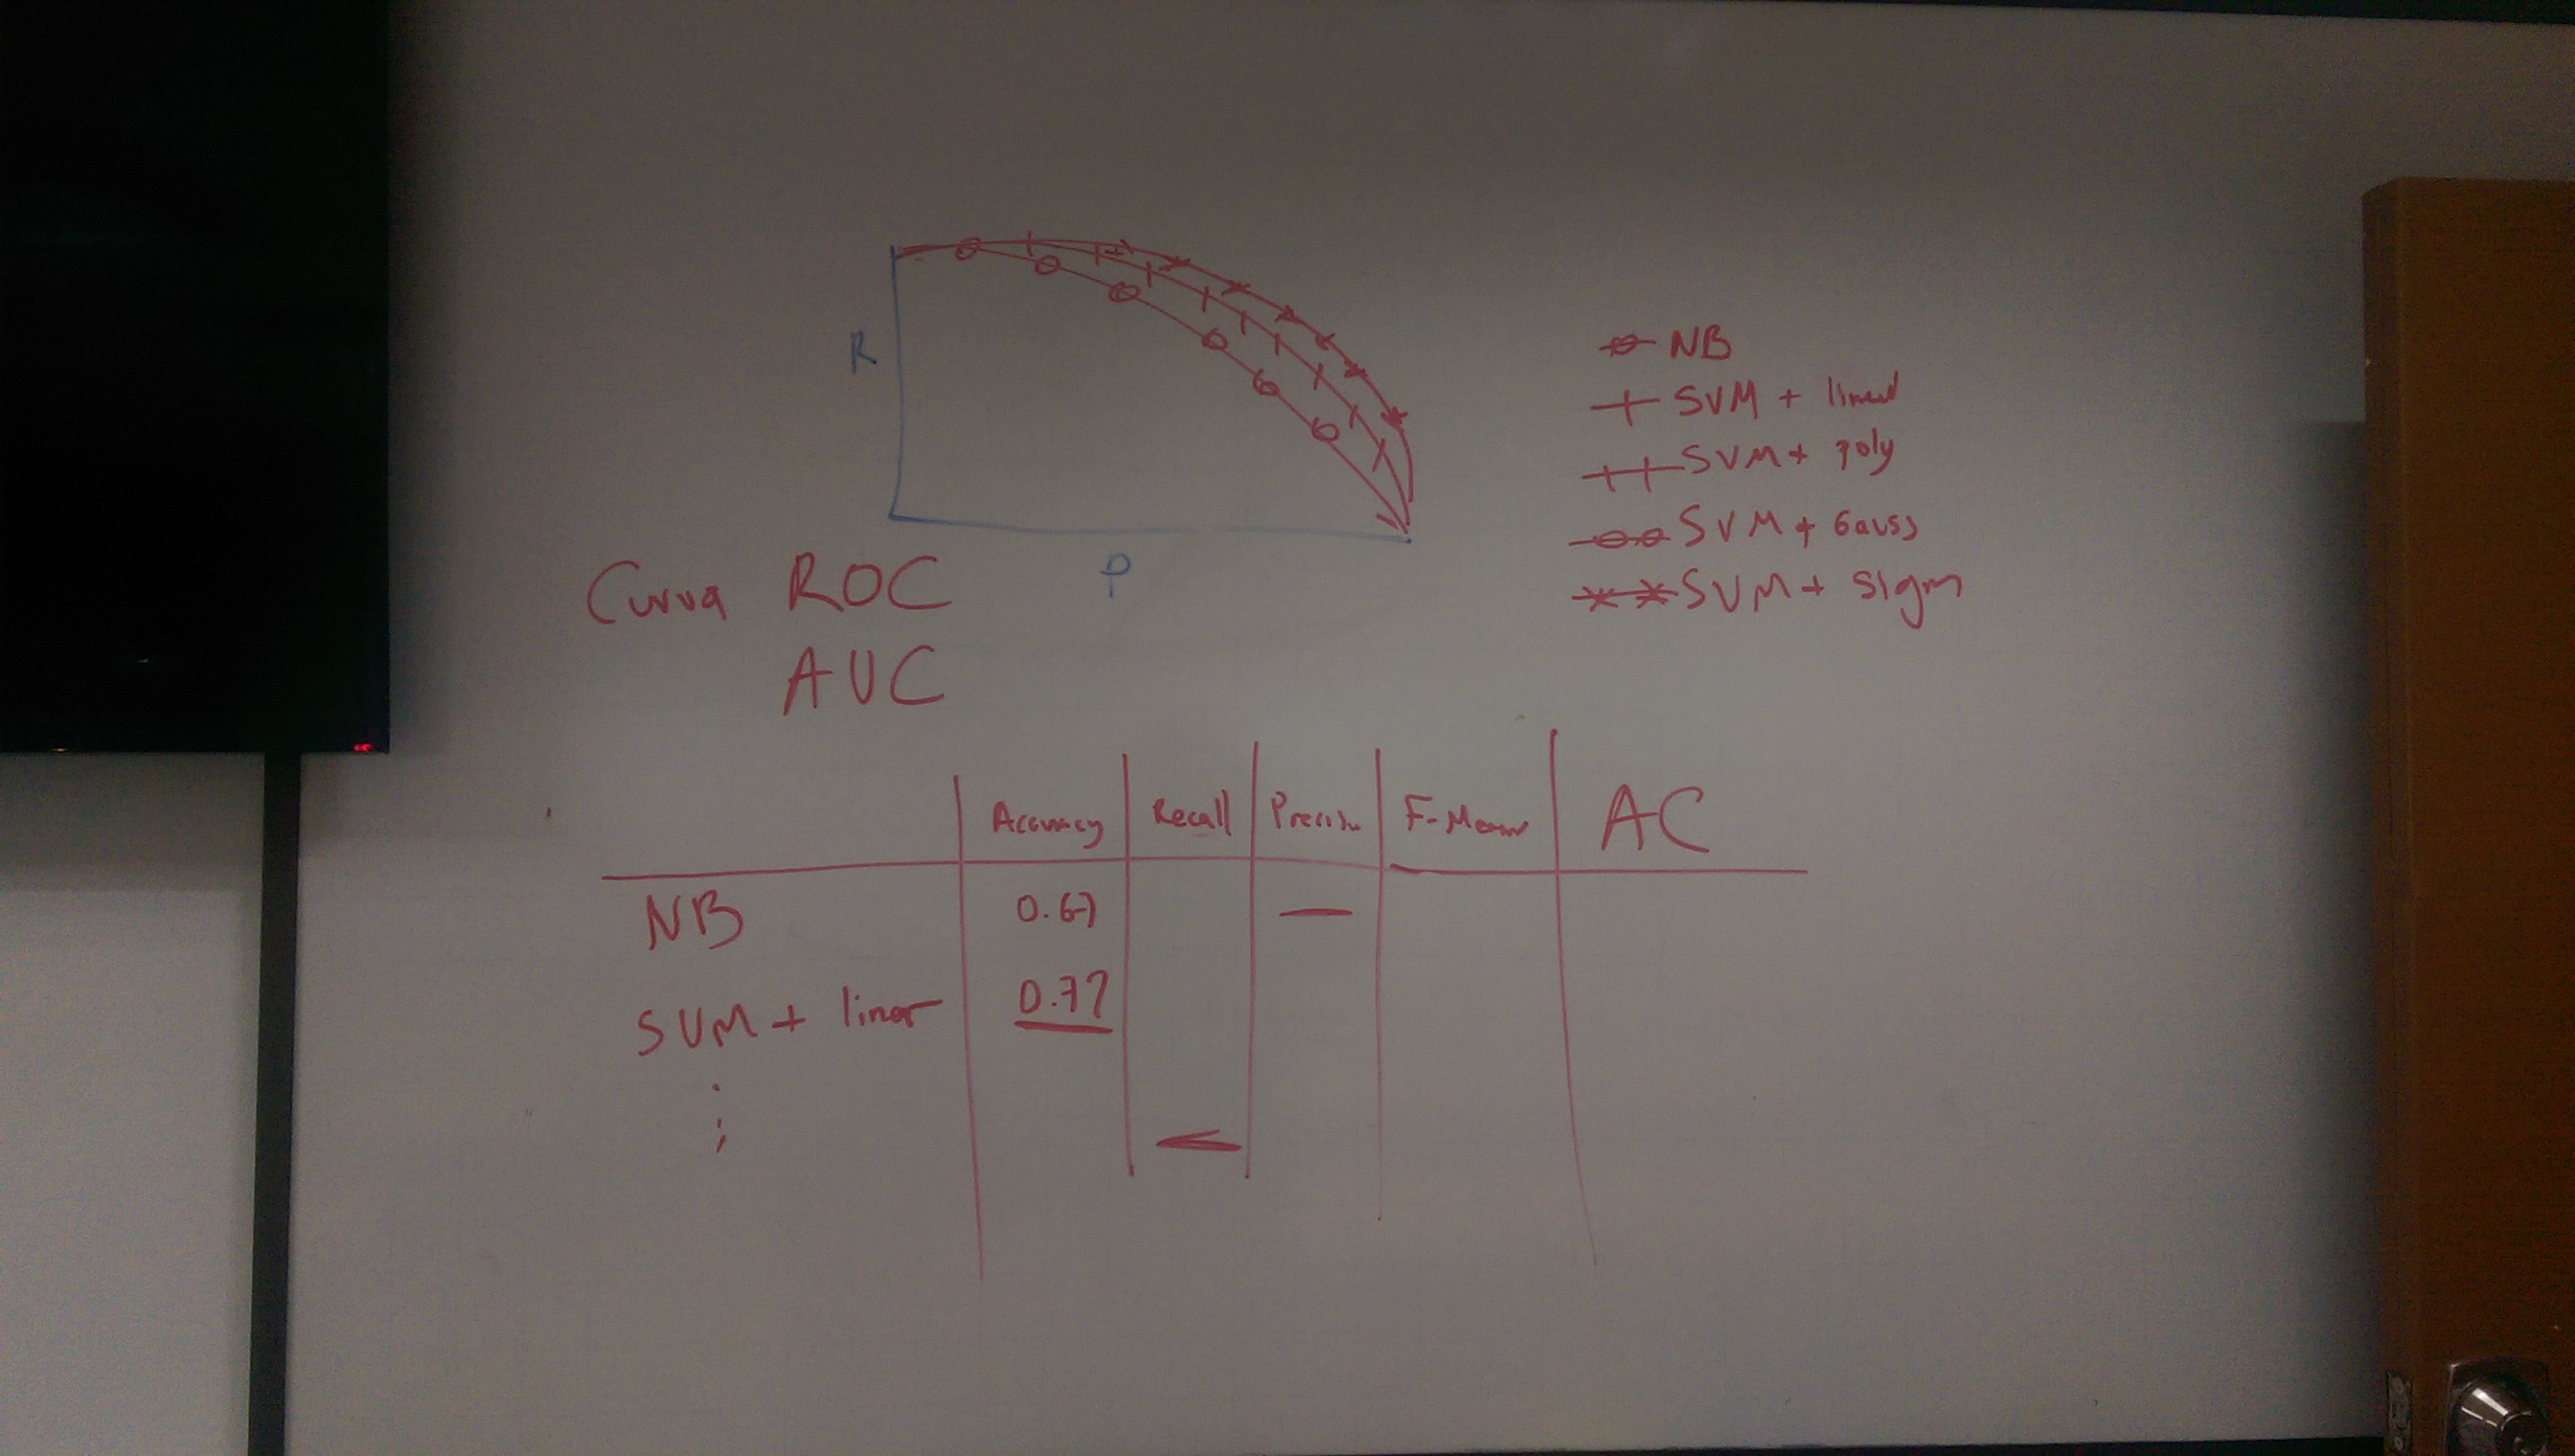 R
P
NB
SVM + linear
SVM + poly
SVM + Gauss
SVM + sigm
Curva ROC
AUC
Accuracy Recall Precisn F-Mean AC
NB 0.67 —
SVM + linear 0.77